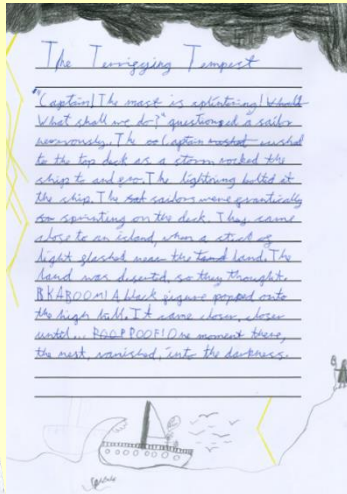 The Terrigying Tempest
"Captain! The mast is splintering! Whall
What shall we do?" questioned a sailor
nervously. The Captain rushed
to the top deck as a storm rocked the
ship to and gro. The lightning bolted at
the ship. The sailors were grantically
sprinting on the deck. They came
close to an island, when a stick og
light glashed near the land. The
land was deserted, so they thought.
BKABOOM! A black gigure popped onto
the high hill. It came closer, closer
until... POOF! One moment there,
the next, vanished, into the darkness.